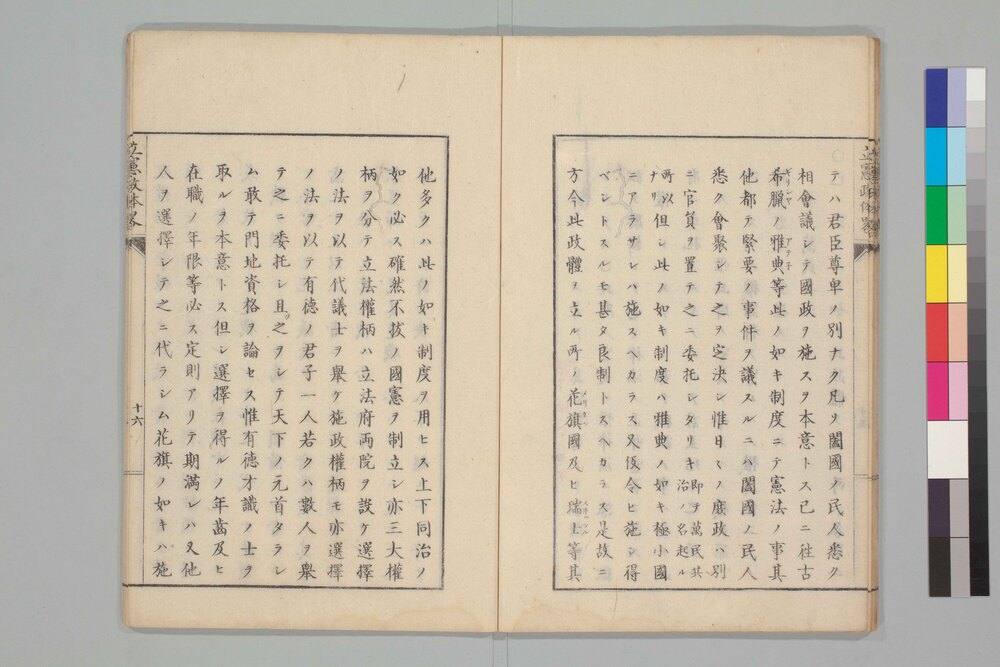 テハ君臣尊卑ノ別ナク凡ソ闔國ノ民人悉ク
相會議シテ國政ヲ施スヲ本意トス已ニ往古
希臘ノ雅典等此ノ如キ制度ニテ憲法ノ事其
ギリシヤ
アテネ
他都テ緊要ノ事件ヲ議スルニハ闔國ノ民人
悉ク會聚シテ之ヲ定決シ惟日々ノ庶政ハ別
ニ官員ヲ置テ之ニ委托シタリキ
即チ萬民共
治ノ名起ル
所以
ナリ
但シ此ノ如キ制度ハ雅典ノ如キ極小國
ニアラザレハ施スベカラス又仮令ヒ施シ得
ベシトスルモ甚タ良制トスヘカラス是故ニ
方今此政體ヲ立ル所ノ花旗國及ヒ瑞士等其
他多クハ此ノ如キ制度ヲ用ヒス上下同治ノ
如ク必ス確然不拔ノ國憲ヲ制立シ亦三大權
柄ヲ分テ立法權柄ハ立法府両院ヲ設ケ選擇
ノ法ヲ以テ代議士ヲ舉ケ施政權柄モ亦選擇
ノ法ヲ以テ有德ノ君子一人若クハ數人ヲ舉
テ之ニ委托シ且ツ之ヲシテ天下ノ元首タラシ
ム敢テ門地資格ヲ論セス惟有德才識ノ士ヲ
取ルヲ本意トス但シ選擇ヲ得ルノ年齒及ヒ
在職ノ年限等必ス定則アリテ期滿レハ又他
人ヲ選擇シテ之ニ代ラシム花旗ノ如キハ施
立憲政体畧
十六